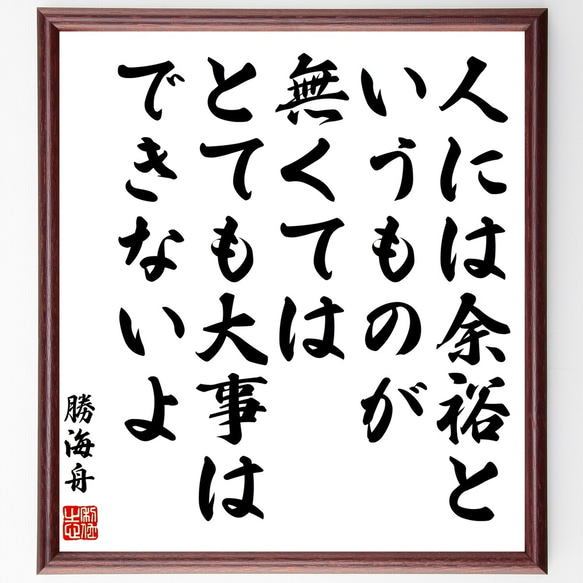 人には余裕と
いうものが
無くては
とても大事は
できないよ
勝海舟